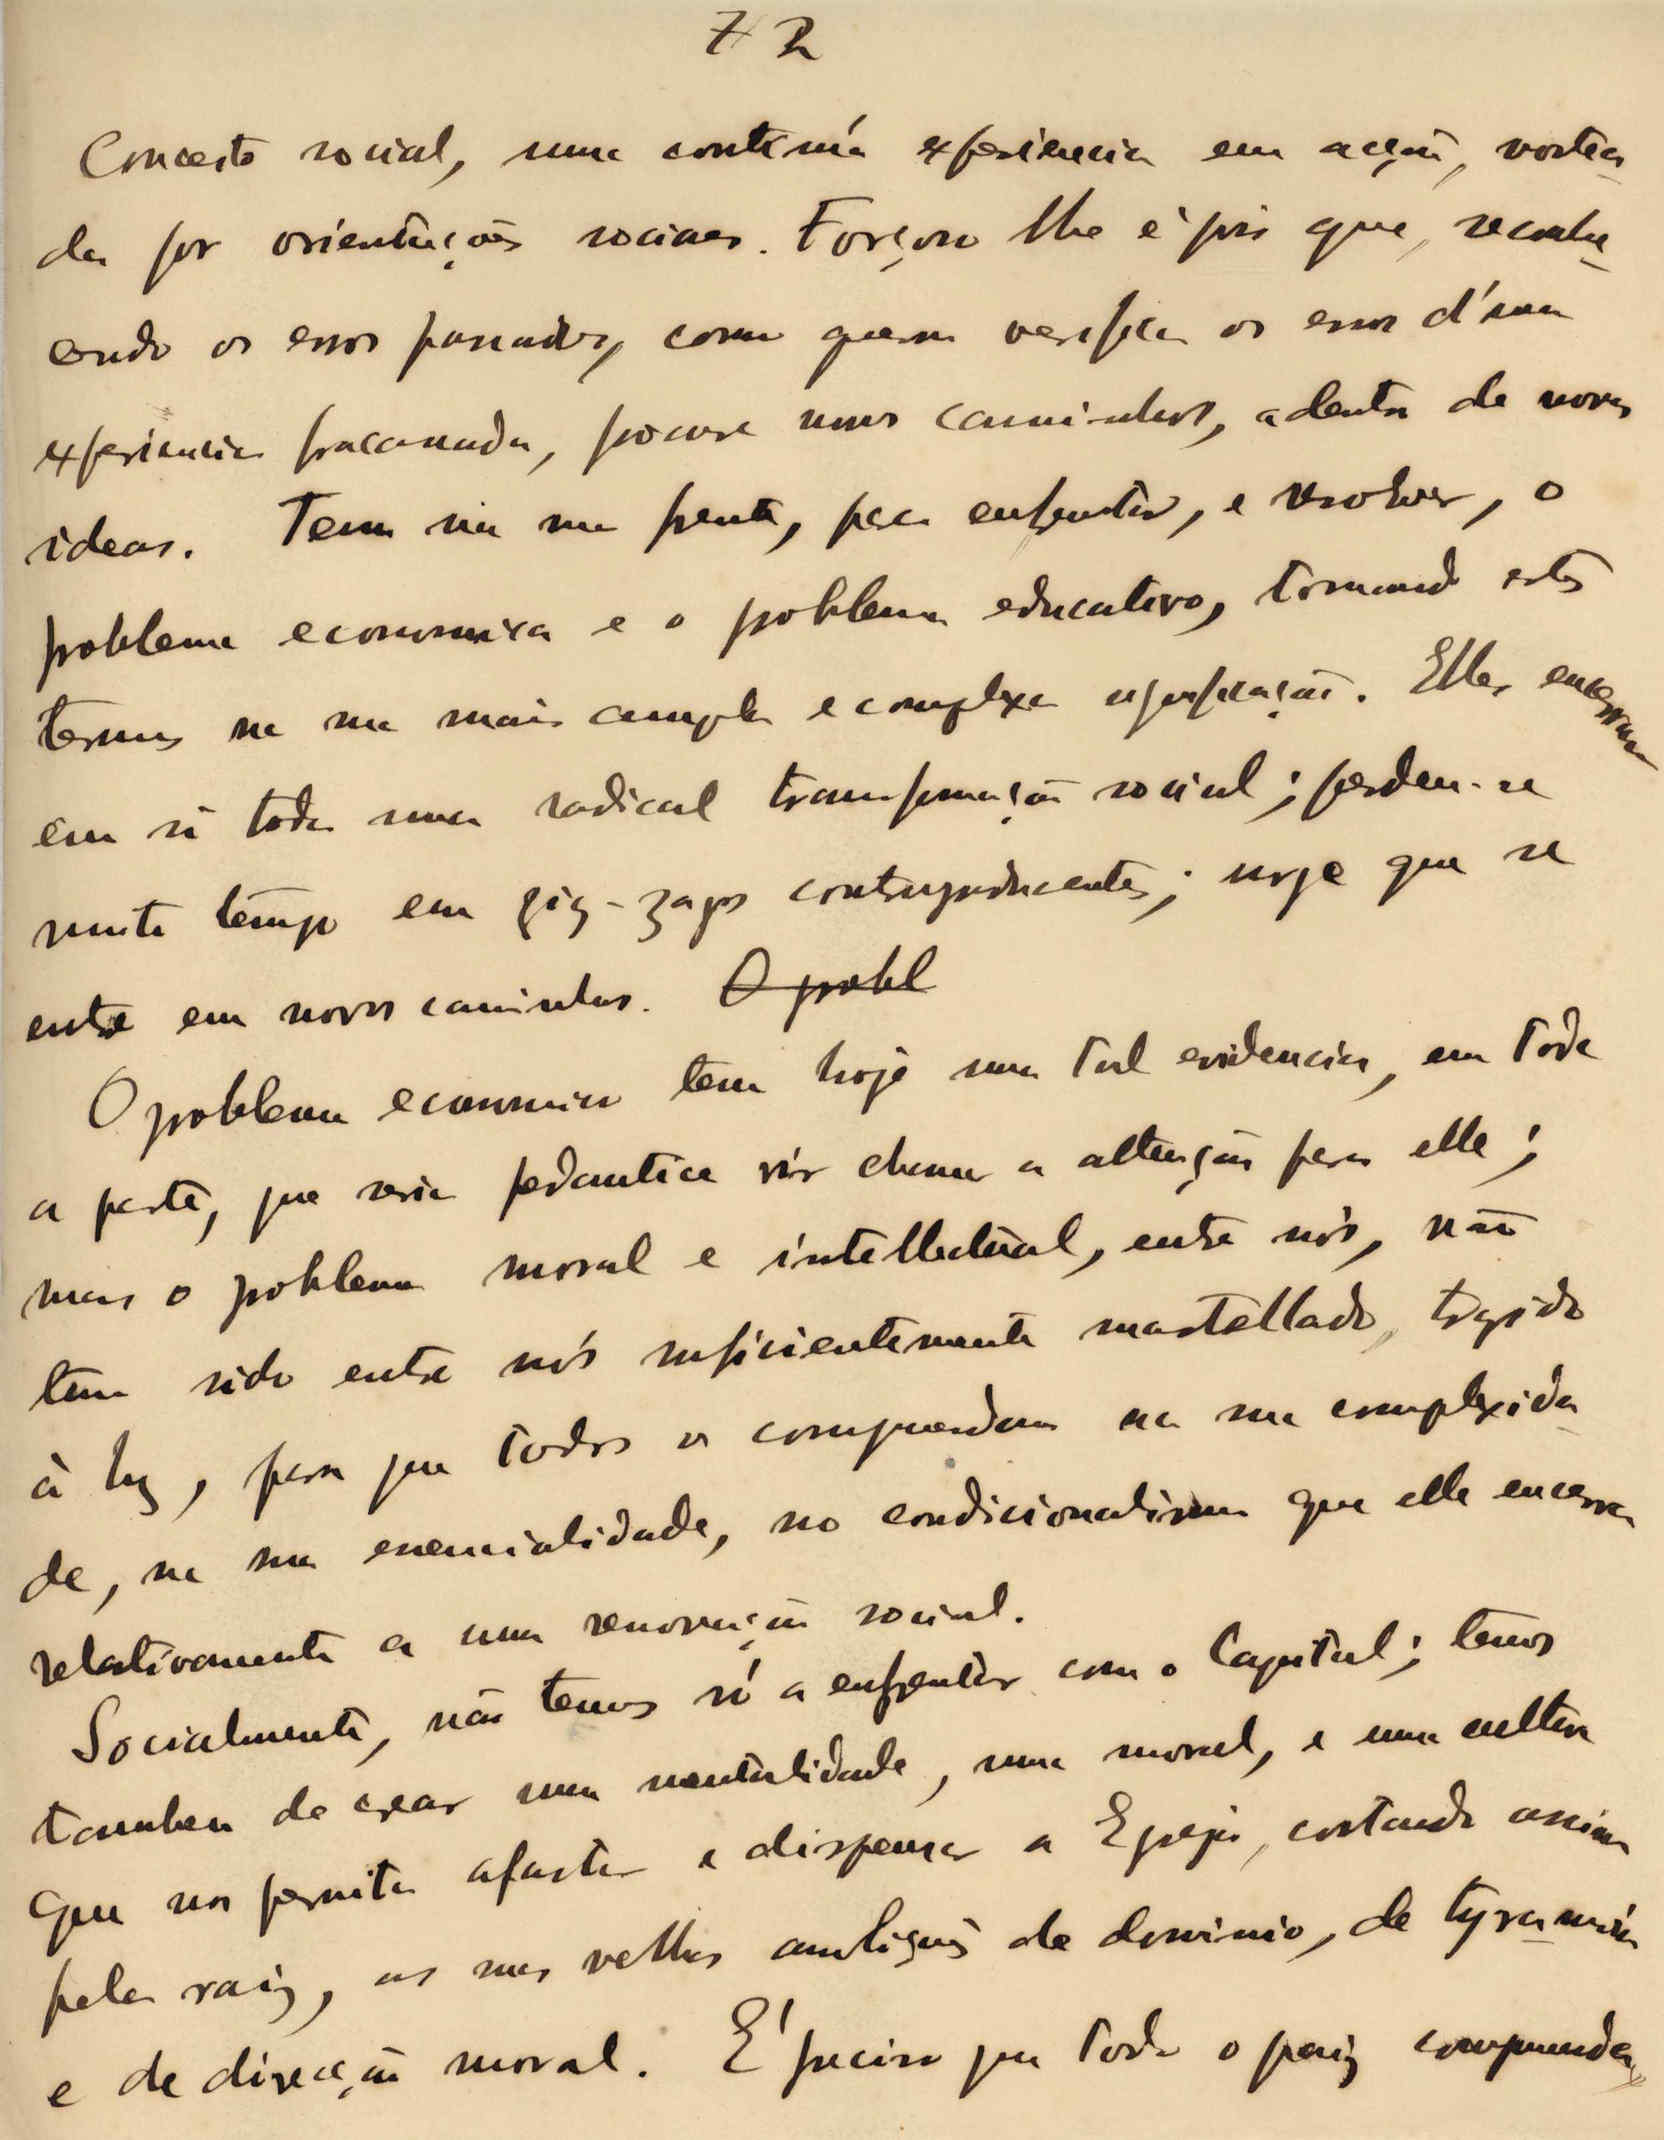 7 R
Concerto social, uma contínua experiencia em acção, nortea-
da por orientações sociaes. Forçoso lhe é pois que, reconhe-
cendo os erros passados, como quem verifica os erros d'uma
experiencia fracassada, procure novos caminhos, adentro de novas
ideas. Tem na sua frente, para enfrentar, e resolver, o
problema economico e o problema educativo, tomando estes
termos na sua mais ampla e complexa significação. Elles encerram
em si toda uma radical transformação social; perdeu-se
muito tempo em zig-zags contraproducentes; urge que se
entre em novos caminhos. O probl
O problema economico tem hoje uma tal evidencia, em toda
a parte, que seria pedantice vir chamar a attenção para elle;
mas o problema moral e intellectual, entre nós, não
tem sido entre nós suficientemente martellado, trazido
à luz, para que todos o comprendam na sua complexida-
de, na sua essencialidade, no condicionalismo que elle encerra
relativamente a uma renovação social.
Socialmente, não temos só a enfrentar com o Capital; temos
tambem de crear uma mentalidade, uma moral, e uma cultura
que nos permita afastar e dispensar a Egreja, cortando assim
pela raiz, as suas velhas ambições de dominio, de tyrannia
e de direcção moral. É preciso que todo o paiz comprenda,